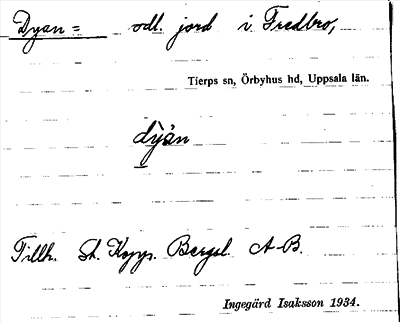 Dyan = odl. jord i Fredbro,
Tierps sn, Örbyhus hd, Uppsala län.
dỳ̀ån
Tillh. St. Kopp. Bergsl. A-B.
Ingegärd Isaksson 1934.